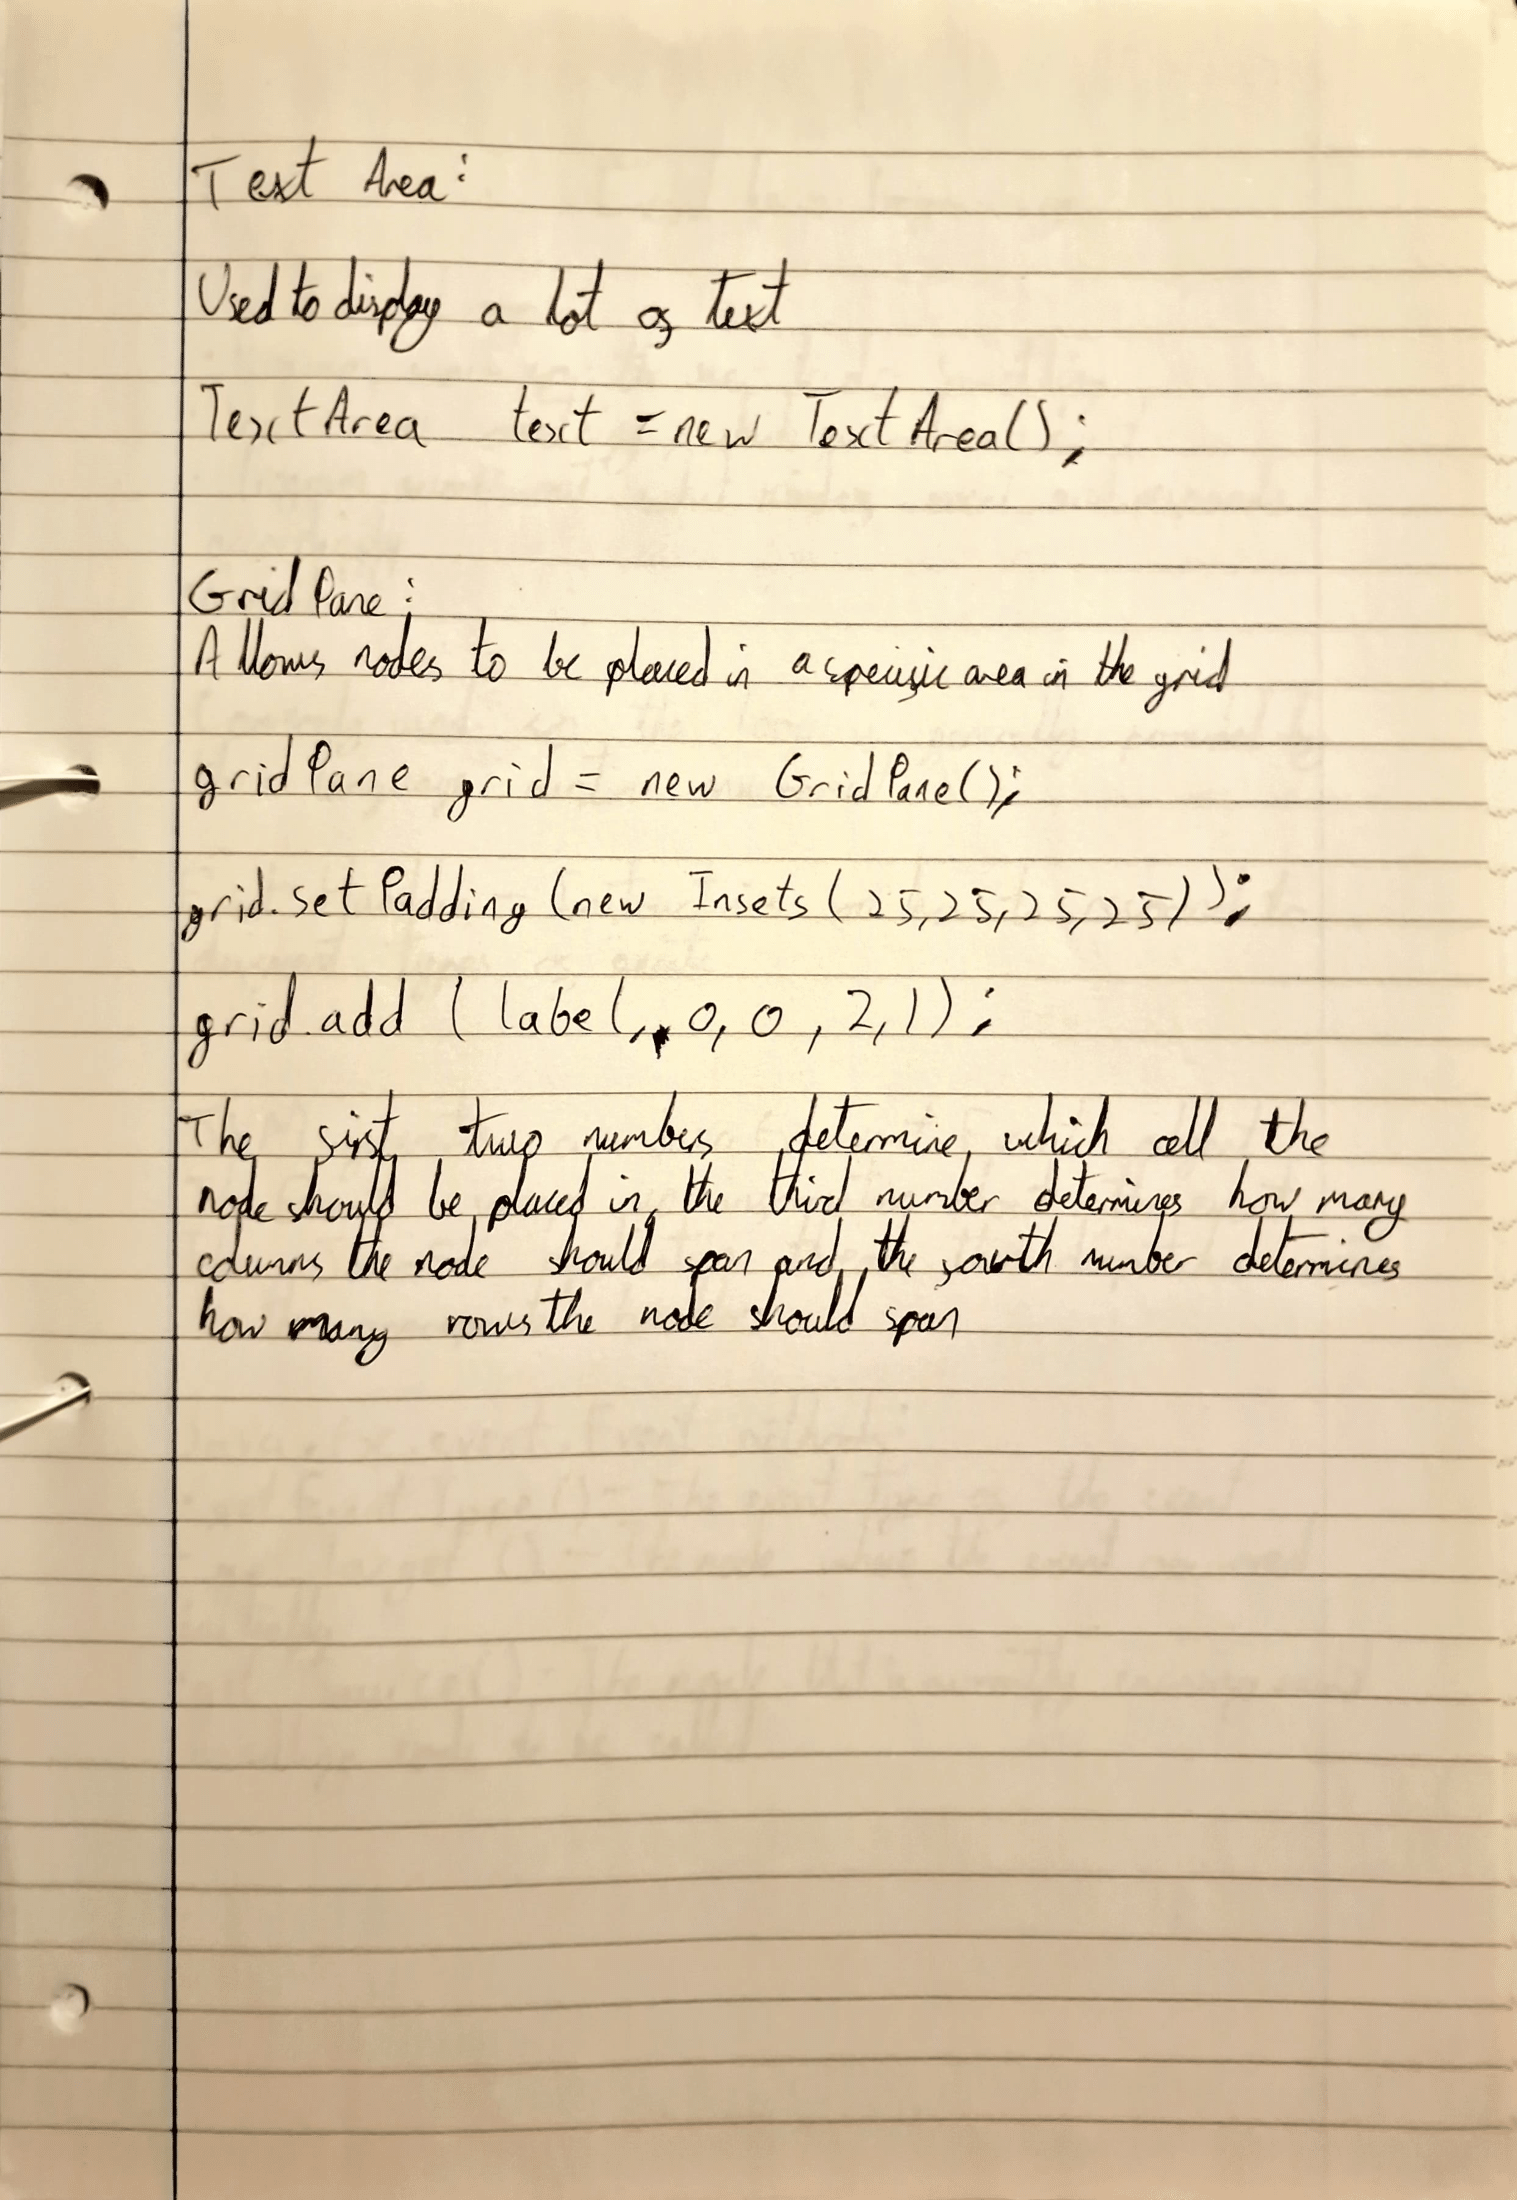 Text Area:
Used to display a lot of text
TextArea text = new TextArea();
GridPane:
Allows nodes to be placed in a specific area in the grid
gridPane grid = new GridPane();
grid.setPadding(new Insets(25,25,25,25));
grid.add(label, 0, 0, 2, 1);
The first two numbers determine which cell the
node should be placed in, the third number determines how many
columns the node should span and the fourth number determines
how many rows the node should span